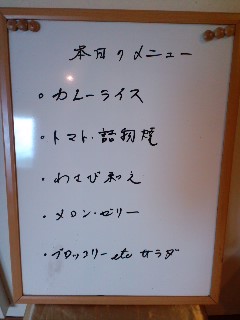 本日のメニュー
・カレーライス
・トマト・詰物焼
・わさび和え
・メロン・ゼリー
・ブロッコリー etc サラダ